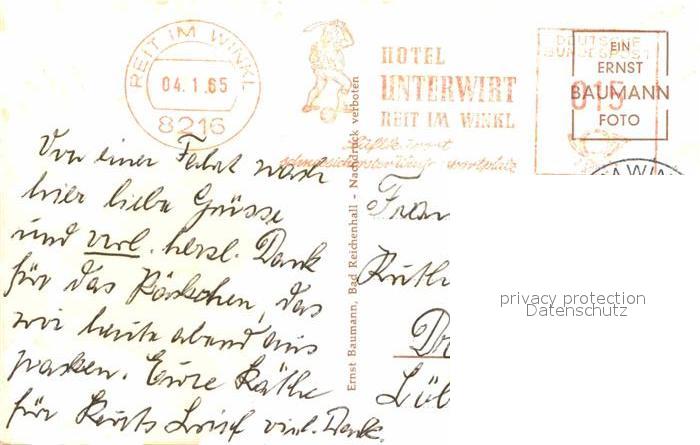 REIT IM WINKL
04.1.65
8216
HOTEL
UNTERWIRT
REIT IM WINKL
DEUTSCHE
BUNDESPOST
015
EIN
ERNST
BAUMANN
FOTO
Von einer Fahrt nach
hier liebe Grüsse
und verl. herzl. Dank
für das Päckchen, das
wir heute abend aus
packen. Eure Käthe
für Kurts Brief viel. Dank.
Ernst Baumann, Bad Reichenhall - Nachdruck verboten
Frau
Ruth
Lüb
privacy protection
Datenschutz